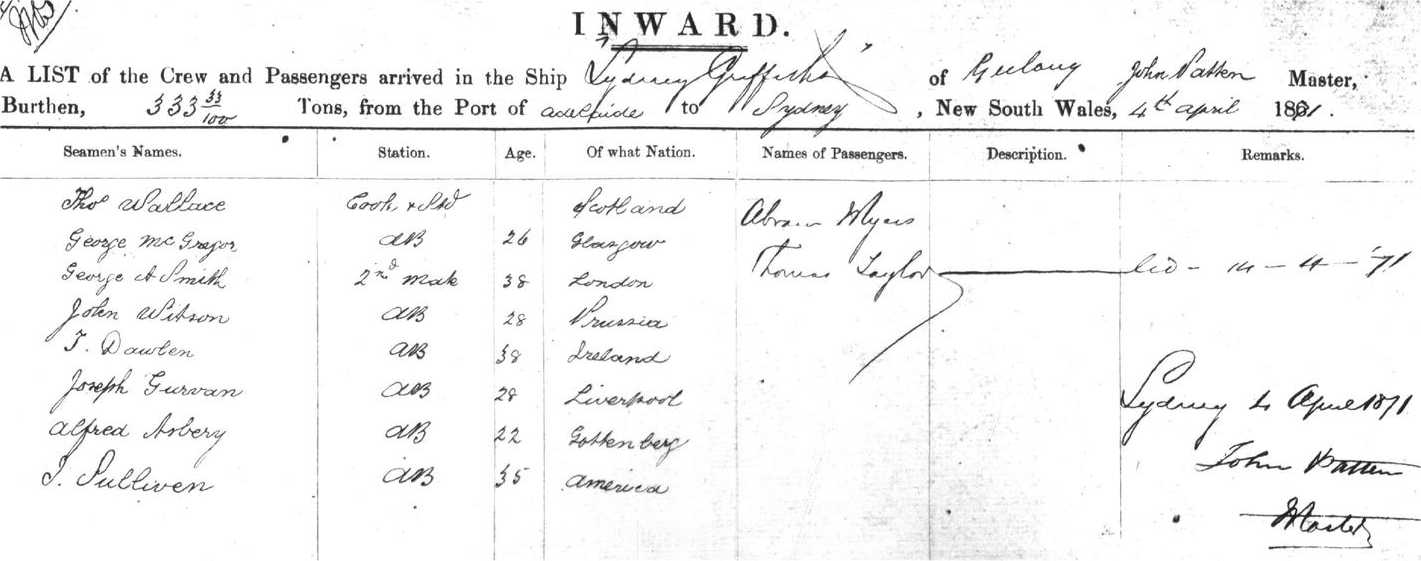 INWARD.
A LIST of the Crew and Passengers arrived in the Ship "Sydney Griffiths" of Geelong John Patten Master,
Burthen, 333 33/100 Tons, from the Port of adelaide to Sydney, New South Wales, 4th april 1871.
Seamen's Names. Station. Age. Of what Nation. Names of Passengers. Description. Remarks.
Thos Wallace Cook & Std Scotland Abram Myers
George McGregor AB 26 Glasgow
George A Smith 2nd Mate 38 London Thomas Taylor 14 - 4 - '71
John Witson AB 28 Prussia
T. Dawlen AB 38 Ireland
Joseph Gurvan AB 28 Liverpool Sydney 4 April 1871
Alfred Asbery AB 22 Gottenberg
J. Sulliven AB 35 America John Patten
Master